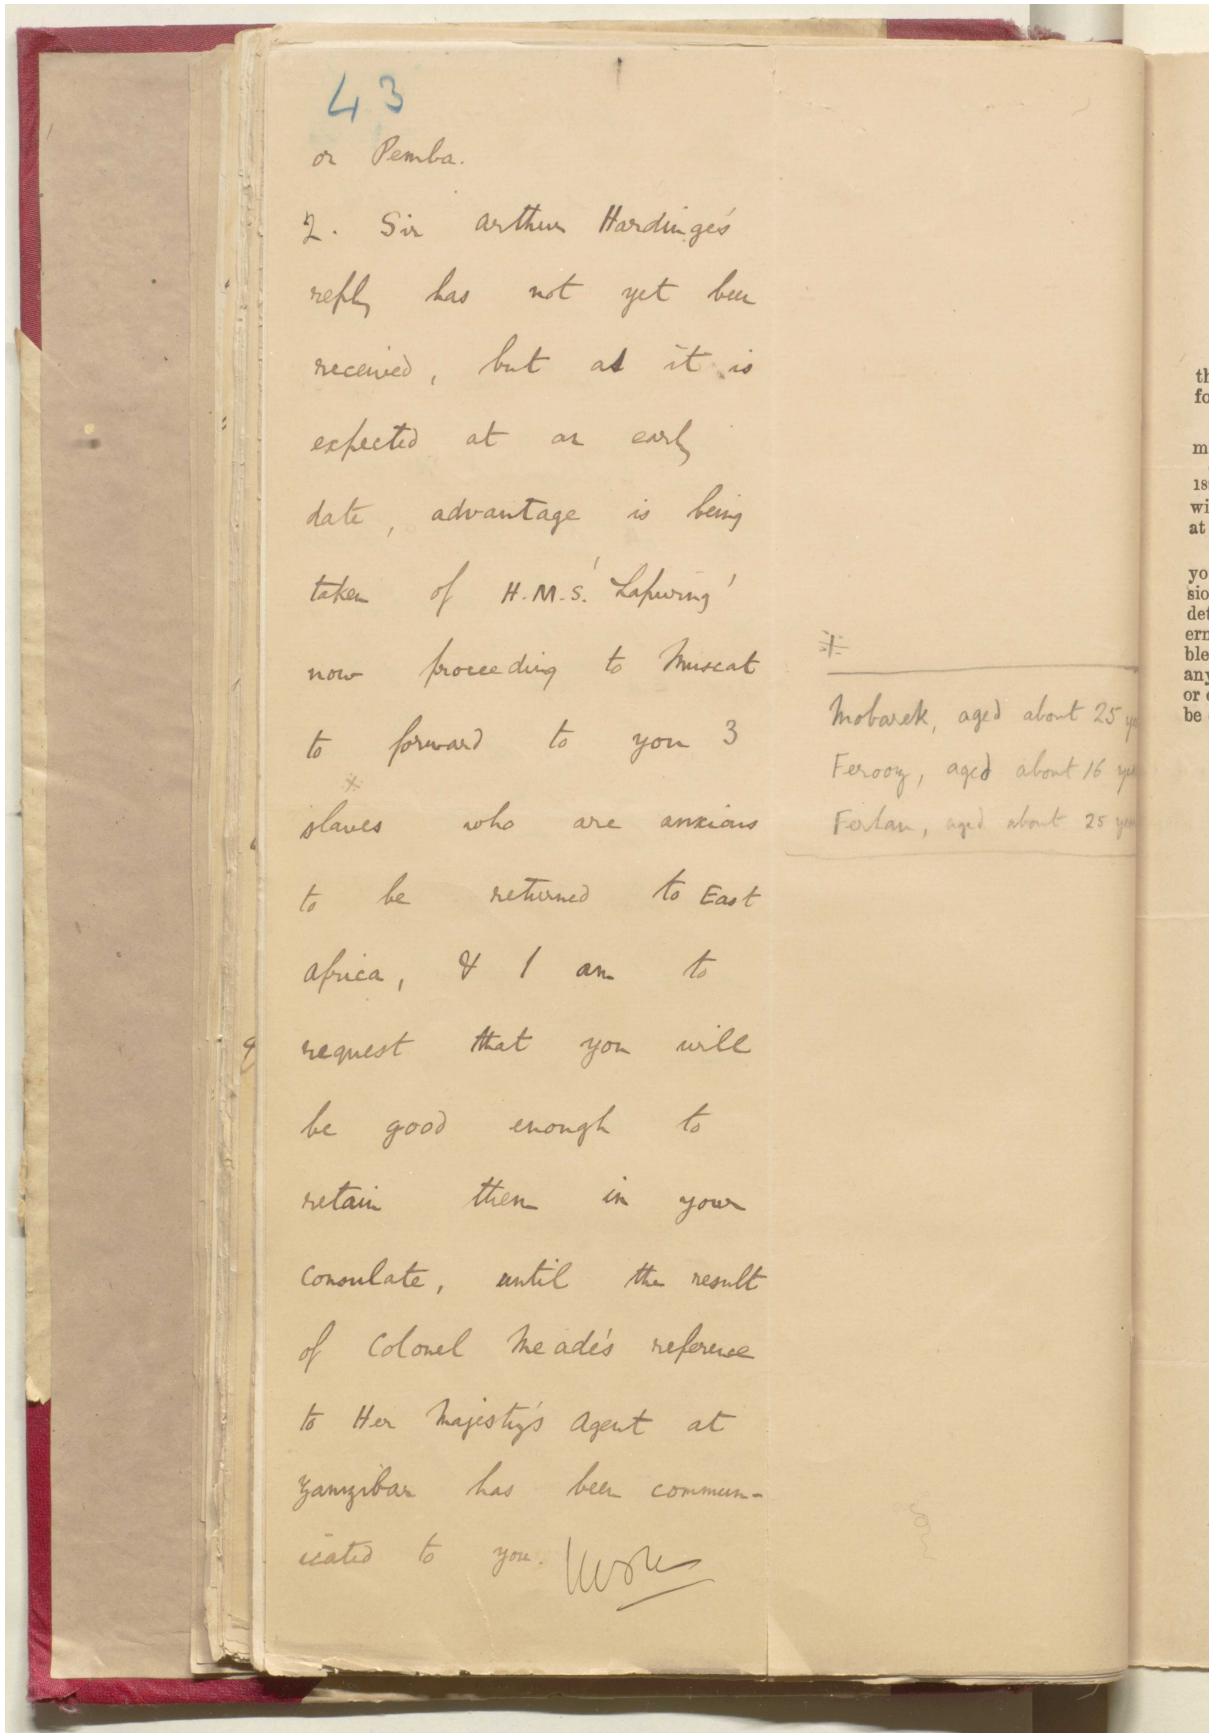 43
or Pemba.
2. Sir Arthur Hardinge's
reply has not yet been
received, but as it is
expected at an early
date, advantage is being
taken of H.M.S. 'Lapwing'
now proceeding to Muscat
to forward to you 3
*
slaves who are anxious
to be returned to East
Africa, & I am to
request that you will
be good enough to
retain them in your
Consulate, until the result
of Colonel Meade's reference
to Her Majesty's Agent at
Zanzibar has been commun-
icated to you.
*
Mobarek, aged about 25
Ferooz, aged about 16
aged about 25
th
fo
m
189
wi
at
yo
sio
det
ern
ble
any
or
be